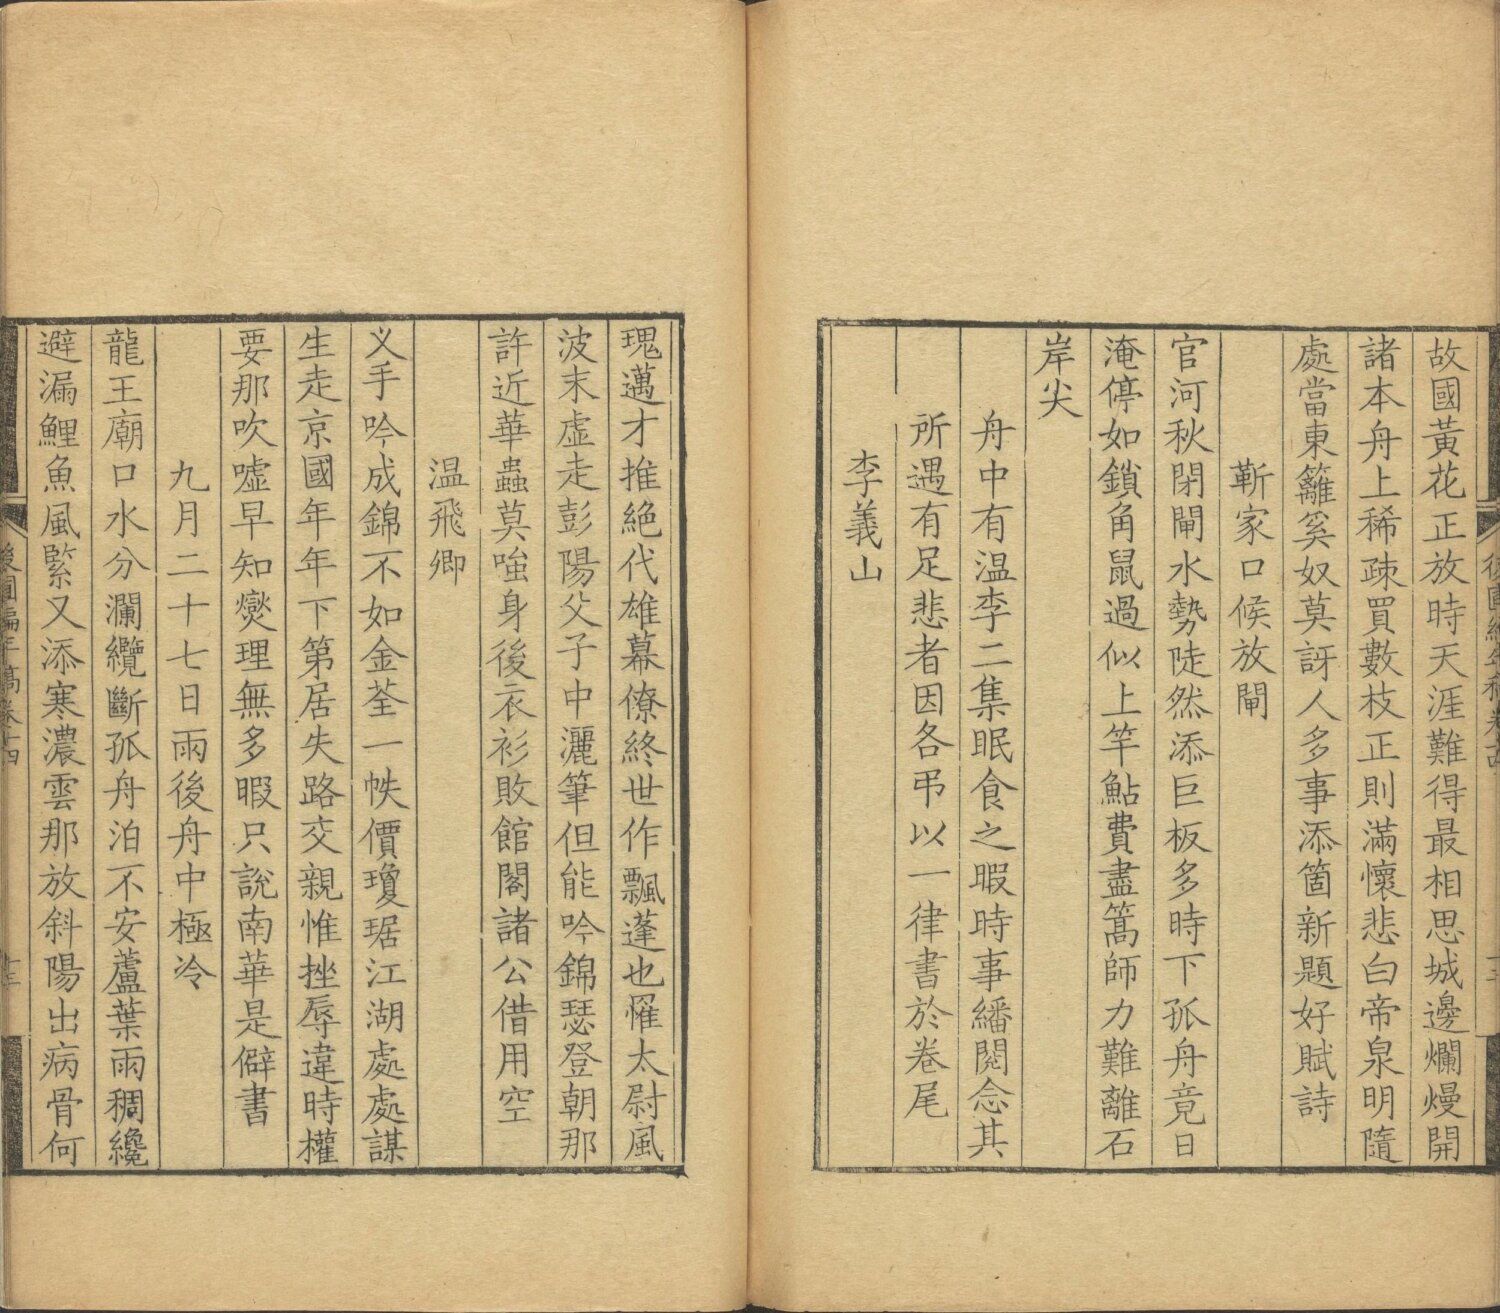 故國黃花正放時天涯難得最相思城邊爛熳開
諸本舟上稀疎買數枝正則滿懷悲白帝泉明隨
處當東籬奚奴莫訝人多事添箇新題好賦詩
靳家口候放閘
官河秋閉閘水勢陡然添巨板多時下孤舟竟日
淹停如鎖角鼠過似上竿鮎費盡篙師力難離石
岸尖
舟中有温李二集眠食之暇時事繙閱念其
所遇有足悲者因各弔以一律書於卷尾
李義山
瑰邁才推絕代雄幕僚終世作飄蓬也罹太尉風
波末虛走彭陽父子中灑筆但能吟錦瑟登朝那
許近華蟲莫嗤身後衣衫敗館閣諸公借用空
温飛卿
义手吟成錦不如金荃一帙價瓊琚江湖處處謀
生走京國年年下第居失路交親惟挫辱違時權
要那吹噓早知爕理無多暇只說南華是僻書
九月二十七日雨後舟中極冷
龍王廟口水分瀾纜斷孤舟泊不安蘆葉雨稠纔
避漏鯉魚風緊又添寒濃雲那放斜陽出病骨何
後圃編年稿卷十四
十三